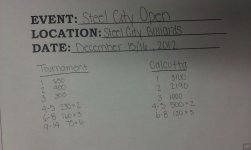 EVENT: Steel City Open
LOCATION: Steel City Billiards
DATE: December 15/16, 2012
Tournament
1 650
2 400
3 300
4-5 230 × 2
6-8 120 × 3
9-14 75 × 6
Calcutta
1 3100
2 2190
3 1000
4-5 500 × 2
6-8 120 × 3